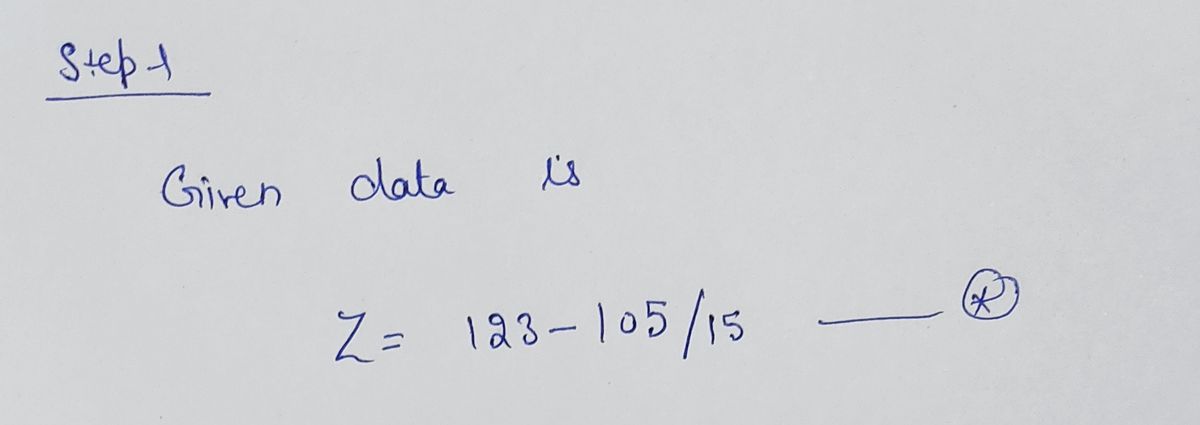 Step 1
Given data is
Z = 123 - 105/15 —— (*)